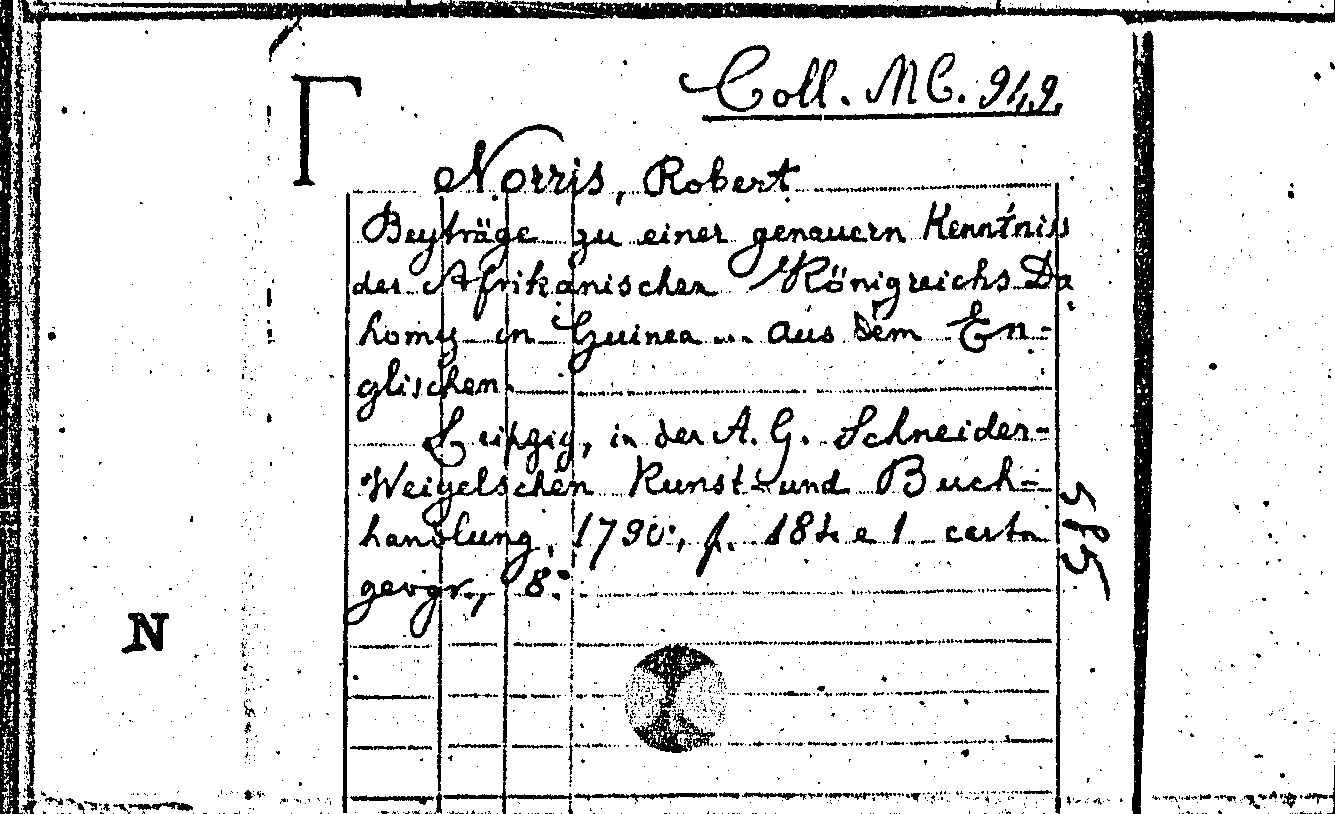 Coll. MC. 91,9.
Norris, Robert
Beyträge zu einer genauern Kenntniss
des Afrikanischen Königreichs Da
homy in Guinea ... aus dem En-
glischen.
Leipzig, in der A. G. Schneider-
Weigelschen Kunst- und Buch-
handlung, 1790, p. 184 e 1 carta
geogr., 8.°
585
N